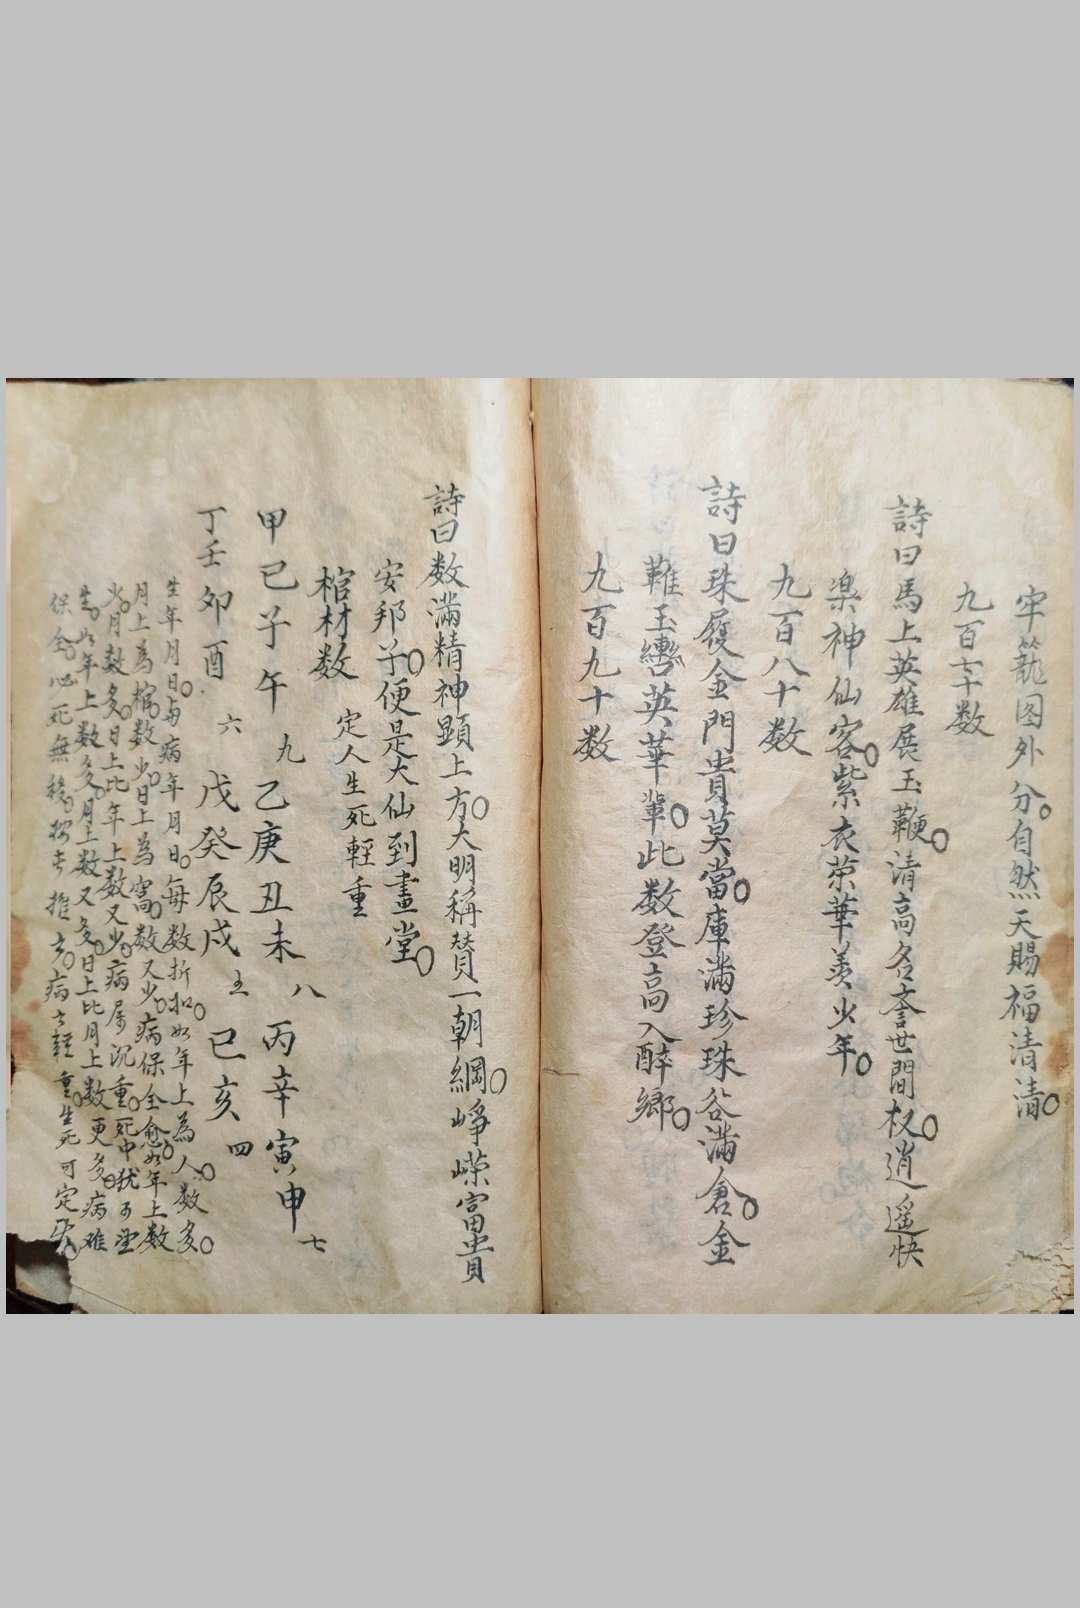 牢籠图外分。自然天賜福清清。
九百七十数
詩曰馬上英雄展玉鞭。清高名誉世間权。逍遥快
楽神仙客。紫衣荣華羡少年。
九百八十数
詩曰珠履金門貴莫當。庫滿珍珠谷滿倉。金
鞍玉轡英華輩。此数登高入醉鄉。
九百九十数
詩曰数滿精神顕上方。大明稱賛一朝綱。崢嶸富貴
安邦子。便是大仙到畫堂。
棺材数 定人生死輕重
甲己子午 九 乙庚丑未 八 丙辛寅申 七
丁壬卯酉 六 戊癸辰戌 五 巳亥 四
生年月日。与病年月日。每数折扣。如年上為人。数多。
月上為棺。数少。日上為窩。数又少。病保全愈。如年上数
少。月数多。日上比年上数又少。病房沉重。死中犹可望
生。如年上数多。月上数又多。日上比月上数更多。病难
保全。必死無移。按此推之。病之輕重。生死可定矣。